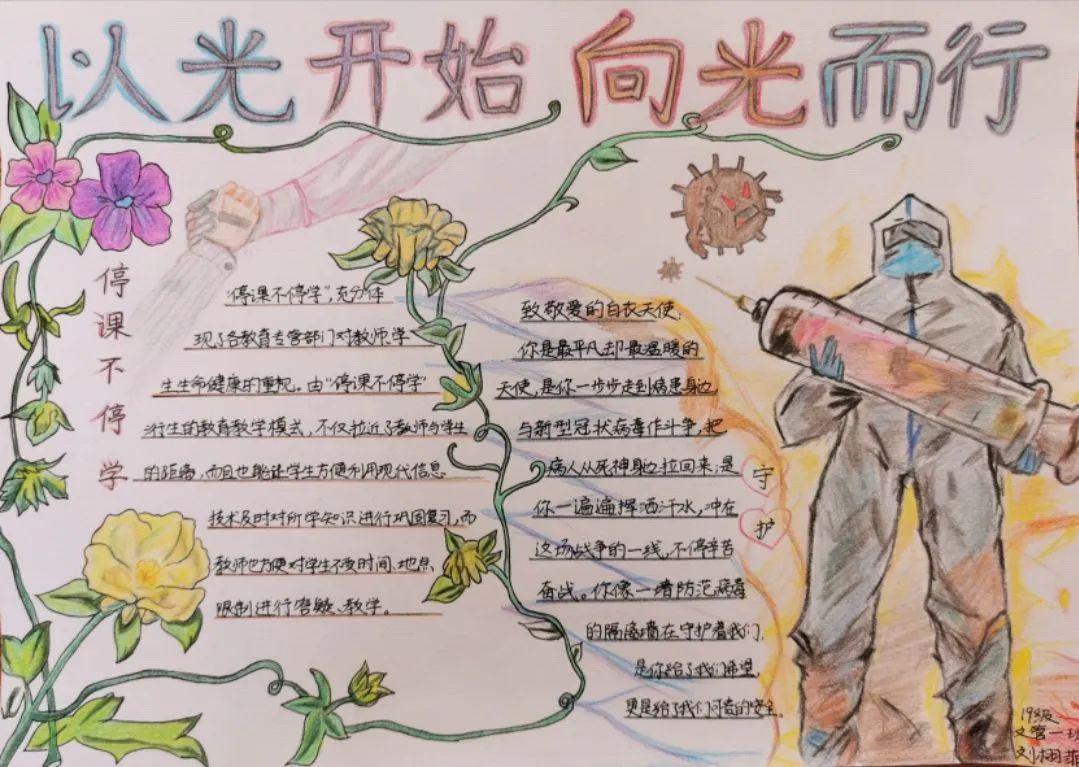 以光开始 向光而行
停课不停学
"停课不停学",充分体
现了各教育主管部门对教师学
生生命健康的重视。由"停课不停学"
衍生的教育教学模式,不仅拉近了教师与学生
的距离,而且也能让学生方便利用现代信息
技术及时对所学知识进行巩固复习,而
教师也方便对学生不受时间、地点、
限制进行答疑、教学。
致敬爱的白衣天使:
你是最平凡却最温暖的
天使,是你一步步走到病患身边
与新型冠状病毒作斗争,把
病人从死神身边拉回来;是
你一遍遍挥洒汗水,冲在
这场战争的一线,不停辛苦
奋战。你像一墙防范病毒
的隔离墙在守护着我们,
是你给了我们希望,
更是给了我们可贵的安全。
守
护
19级
文管一班
刘栩菲